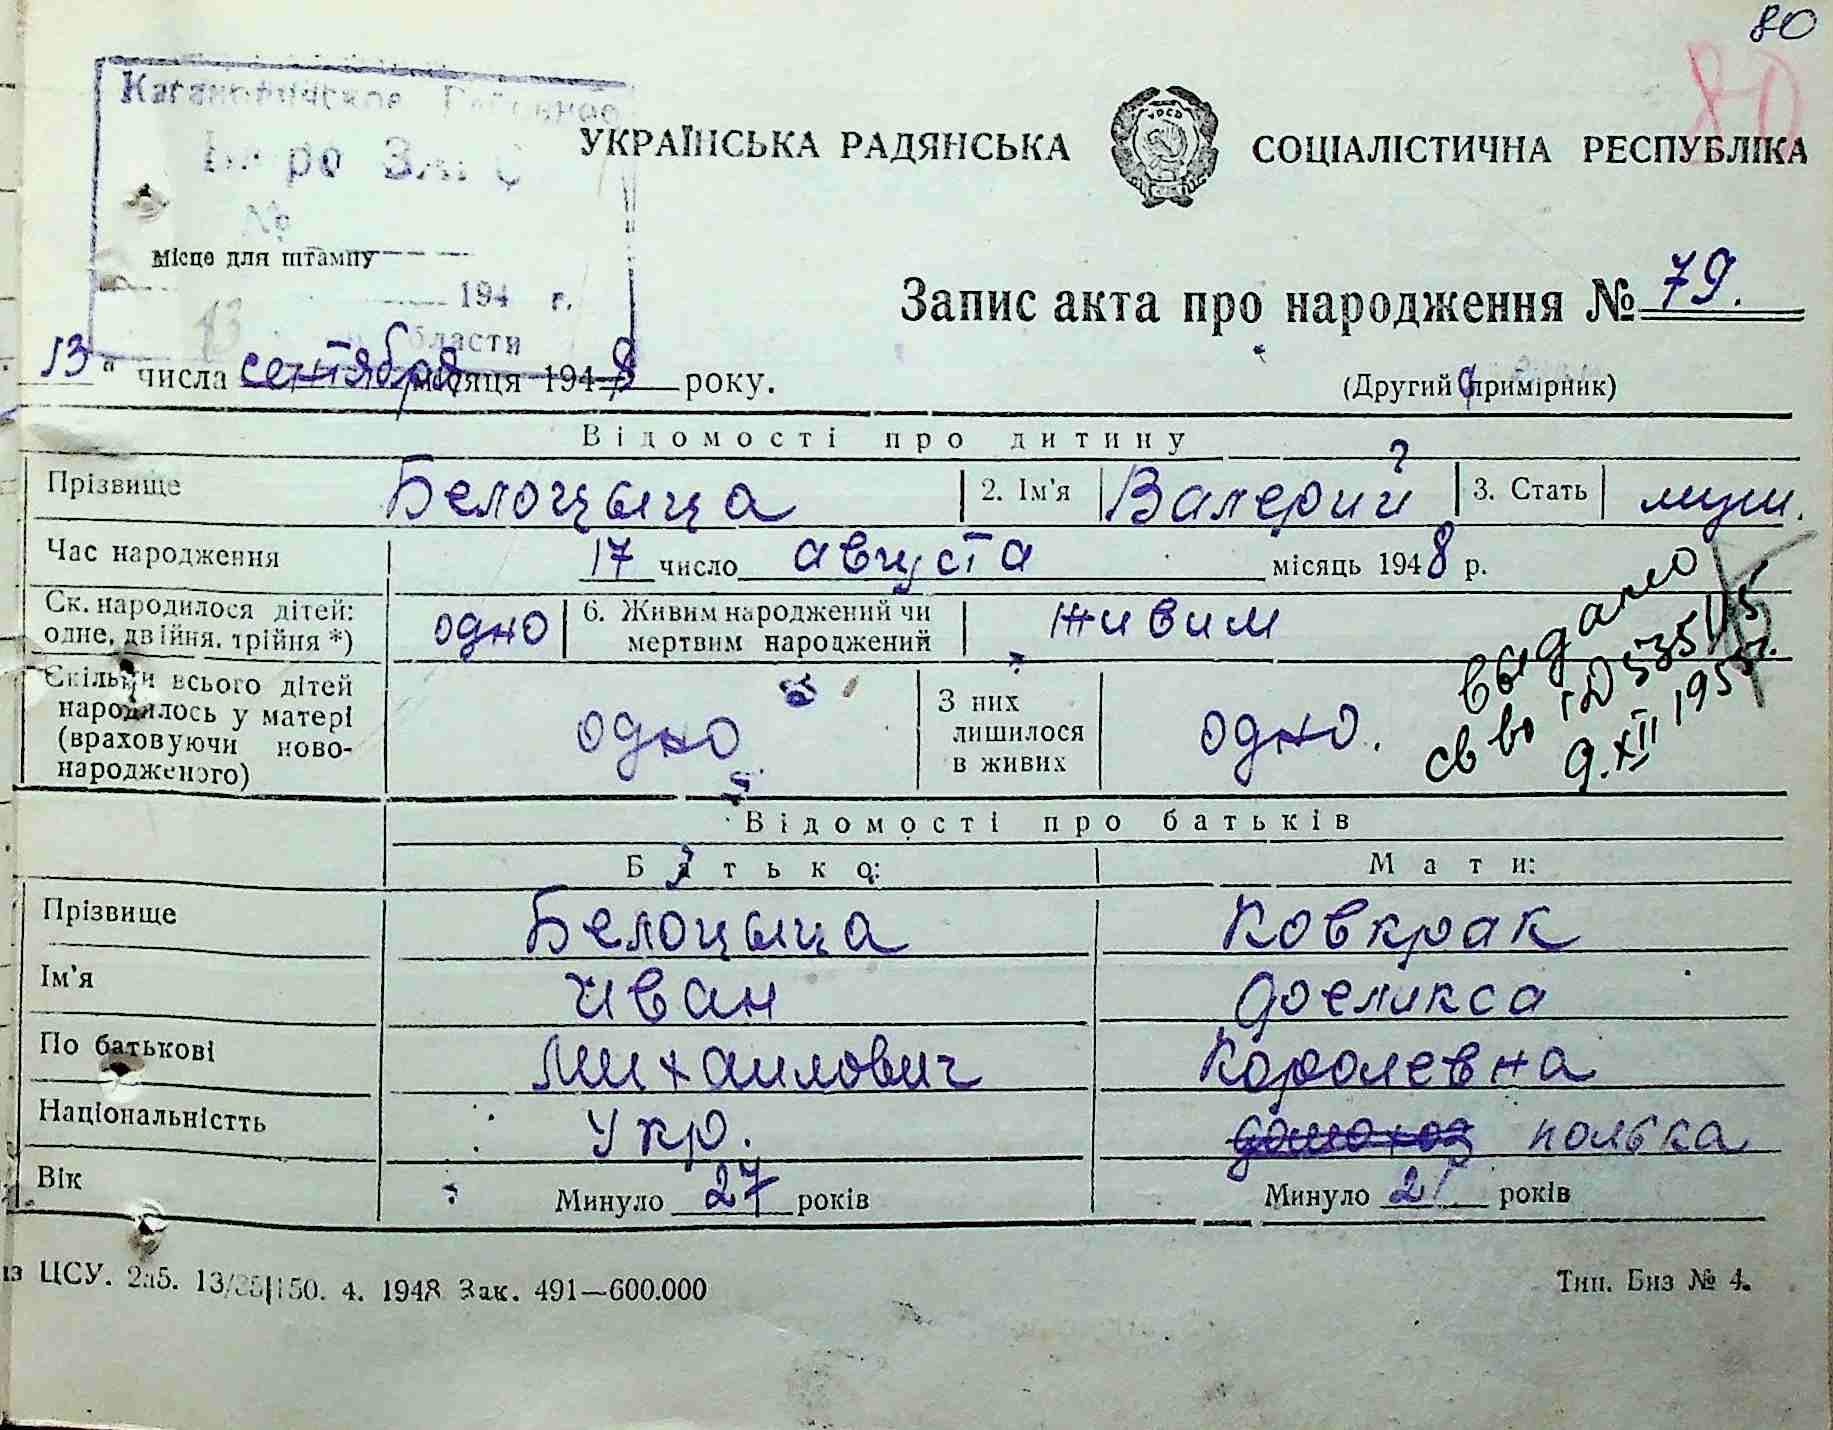 80
80
Кагановичское Районное
Бюро ЗАГС
№
Місце для штампу
194 г.
области
УКРАЇНСЬКА РАДЯНСЬКА СОЦІАЛІСТИЧНА РЕСПУБЛІКА
УРСР
Запис акта про народження № 79.
13 " числа сентября місяця 1948 року.
(Другий примірник)
Відомості про дитину
Прізвище Белоцыца 2. Ім'я Валерий 3. Стать муж.
Час народження 17 число августа місяць 1948 р.
Ск. народилося дітей: одне, двійня, трійня *) одно 6. Живим народжений чи мертвим народжений живим
Скільки всього дітей народилось у матері (враховуючи ново-народженого) одно З них лишилося в живих одно.
выдано
св во 535115
9.XII 195
Відомості про батьків
Батько: Мати:
Прізвище Белоцыца Ковкрак
Ім'я Иван Феликса
По батькові Михаилович Королевна
Національністть Укр. домохоз полька
Вік Минуло 27 років Минуло 21 років
із ЦСУ. 2а5. 13/35|150. 4. 1948 Зак. 491—600.000
Тип. Биз № 4.